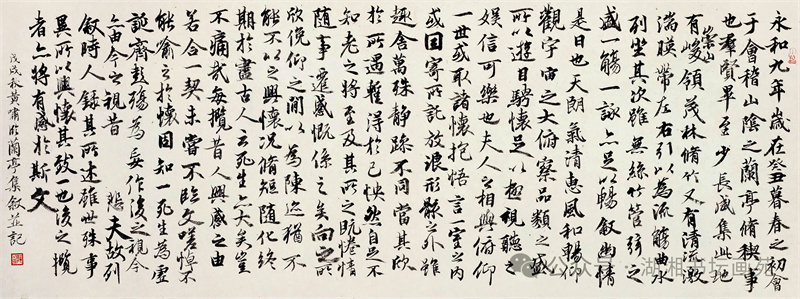 永和九年歲在癸丑暮春之初會
于會稽山陰之蘭亭脩稧事
也羣賢畢至少長咸集此地
有崇山峻領茂林脩竹又有清流激
湍暎帶左右引以為流觴曲水
列坐其次雖無絲竹管弦之
盛一觴一詠亦足以暢敘幽情
是日也天朗氣清惠風和暢仰
觀宇宙之大俯察品類之盛
所以遊目騁懷足以極視聽之
娛信可樂也夫人之相與俯仰
一世或取諸懷抱悟言一室之內
或因寄所託放浪形骸之外雖
趣舍萬殊靜躁不同當其欣
於所遇蹔得於己怏然自足不
知老之將至及其所之既惓情
隨事遷感慨係之矣向之所
欣俛仰之間以為陳迹猶不
能不以之興懷況脩短隨化終
期於盡古人云死生亦大矣豈
不痛哉每攬昔人興感之由
若合一契未嘗不臨文嗟悼不
能喻之於懷固知一死生為虛
誕齊彭殤為妄作後之視今
亦由今之視昔 悲夫故列
敘時人錄其所述雖世殊事
異所以興懷其致一也後之攬
者亦將有感於斯文
戊戌秋黃 蘭亭集敘並記
公众号·湖湘书坛画苑